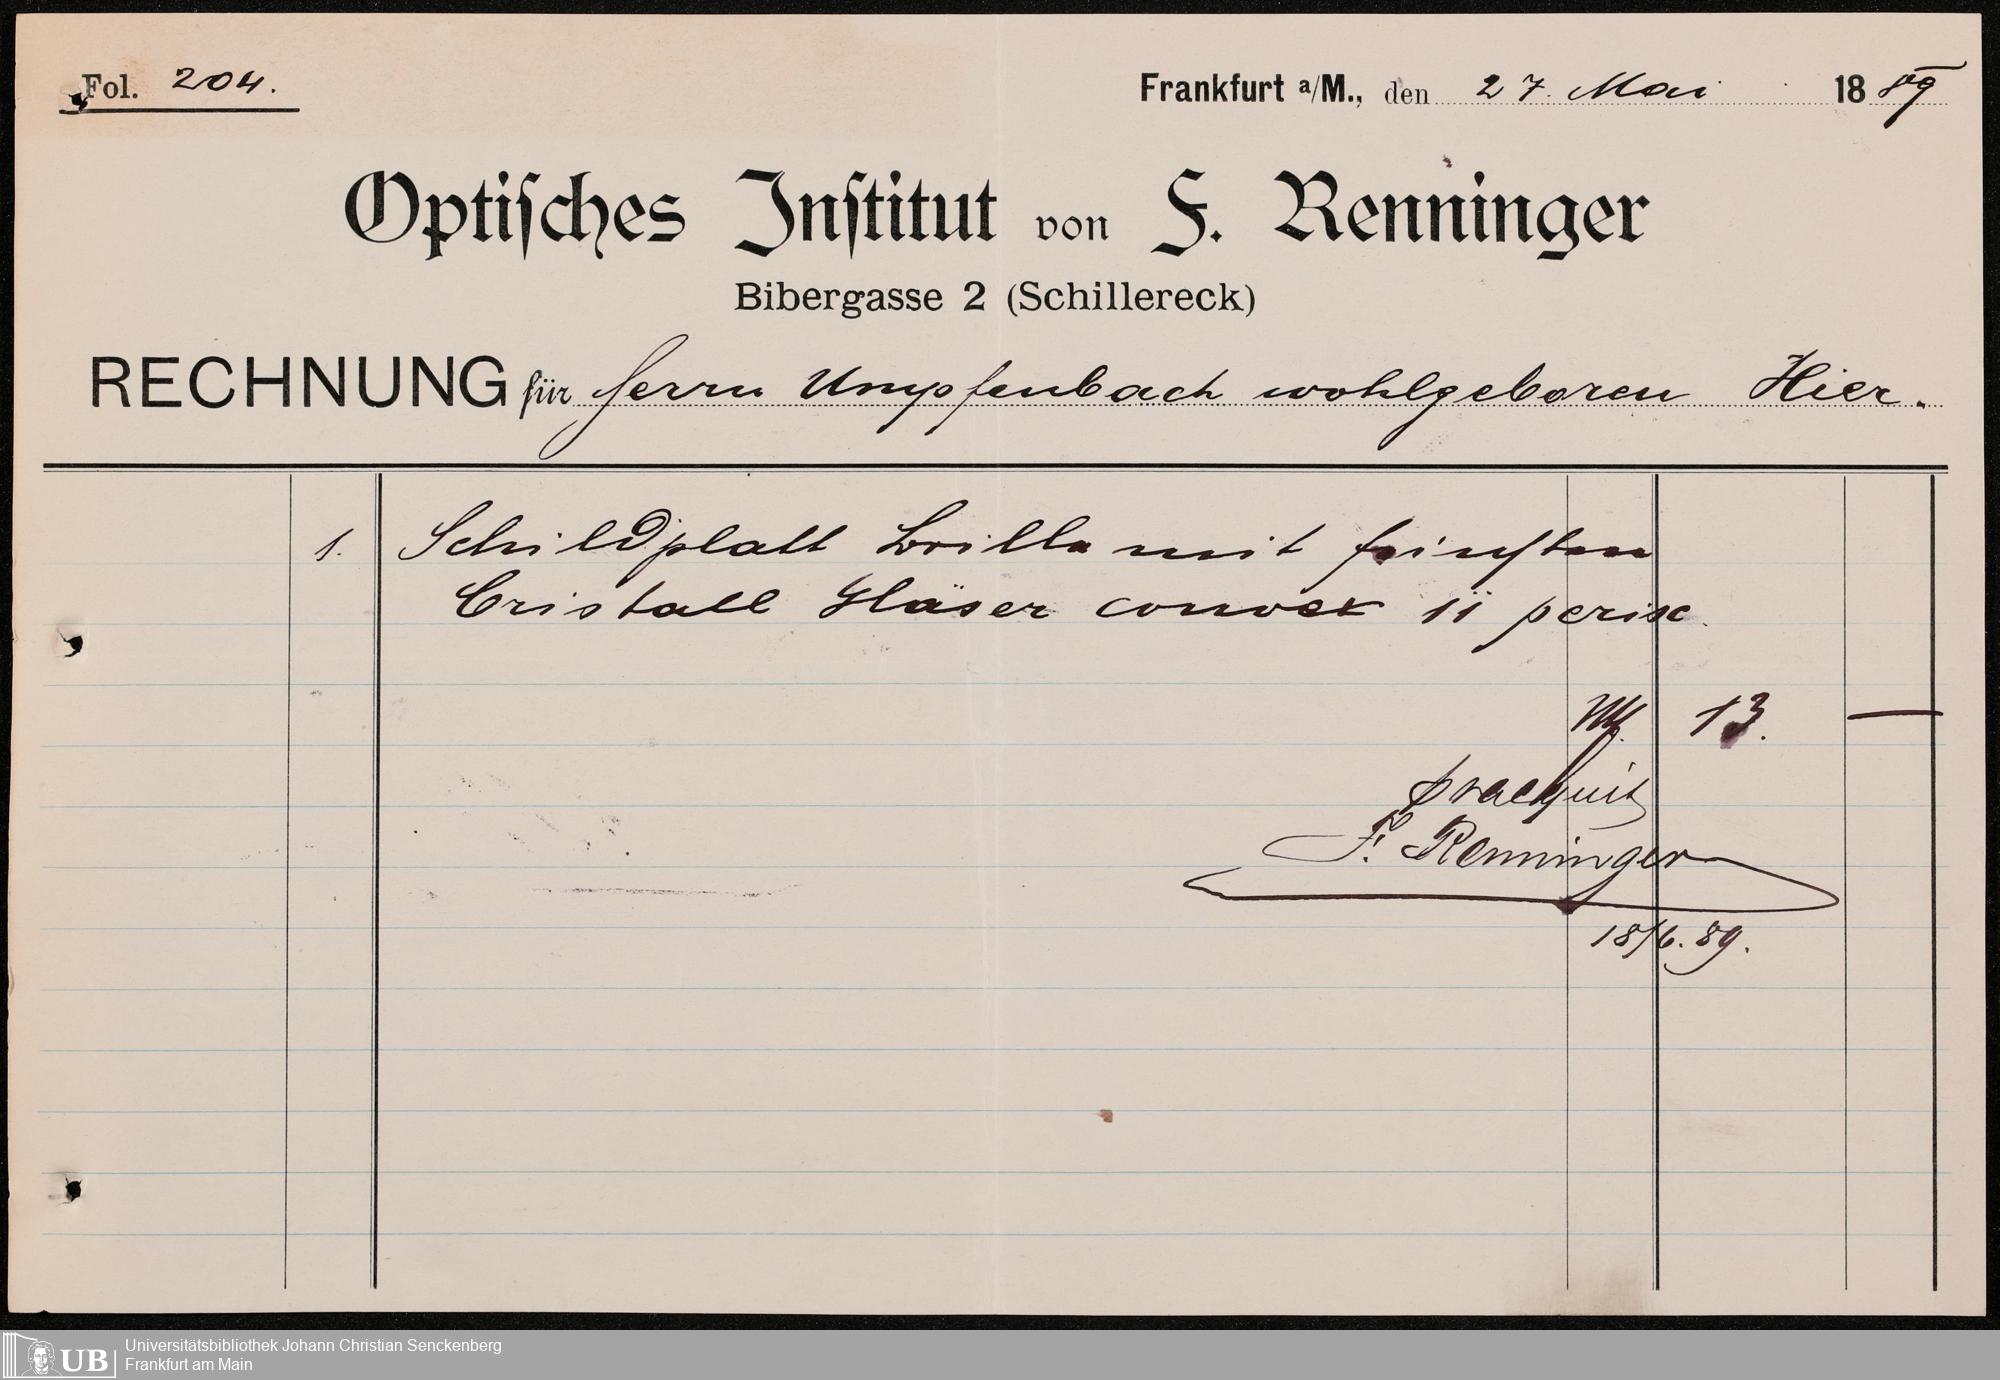 Fol. 204.
Frankfurt a/M., den 27. Mai 1889
Optisches Institut von F. Renninger
Bibergasse 2 (Schillereck)
RECHNUNG für Herrn Umpfenbach wohlgeboren Hier.
1. Schildplatt Brille mit feinsten
Cristall Gläser convex 11 perisc.
M. 13. —
F. Renninger
18/6. 89.
UB Universitätsbibliothek Johann Christian Senckenberg
Frankfurt am Main